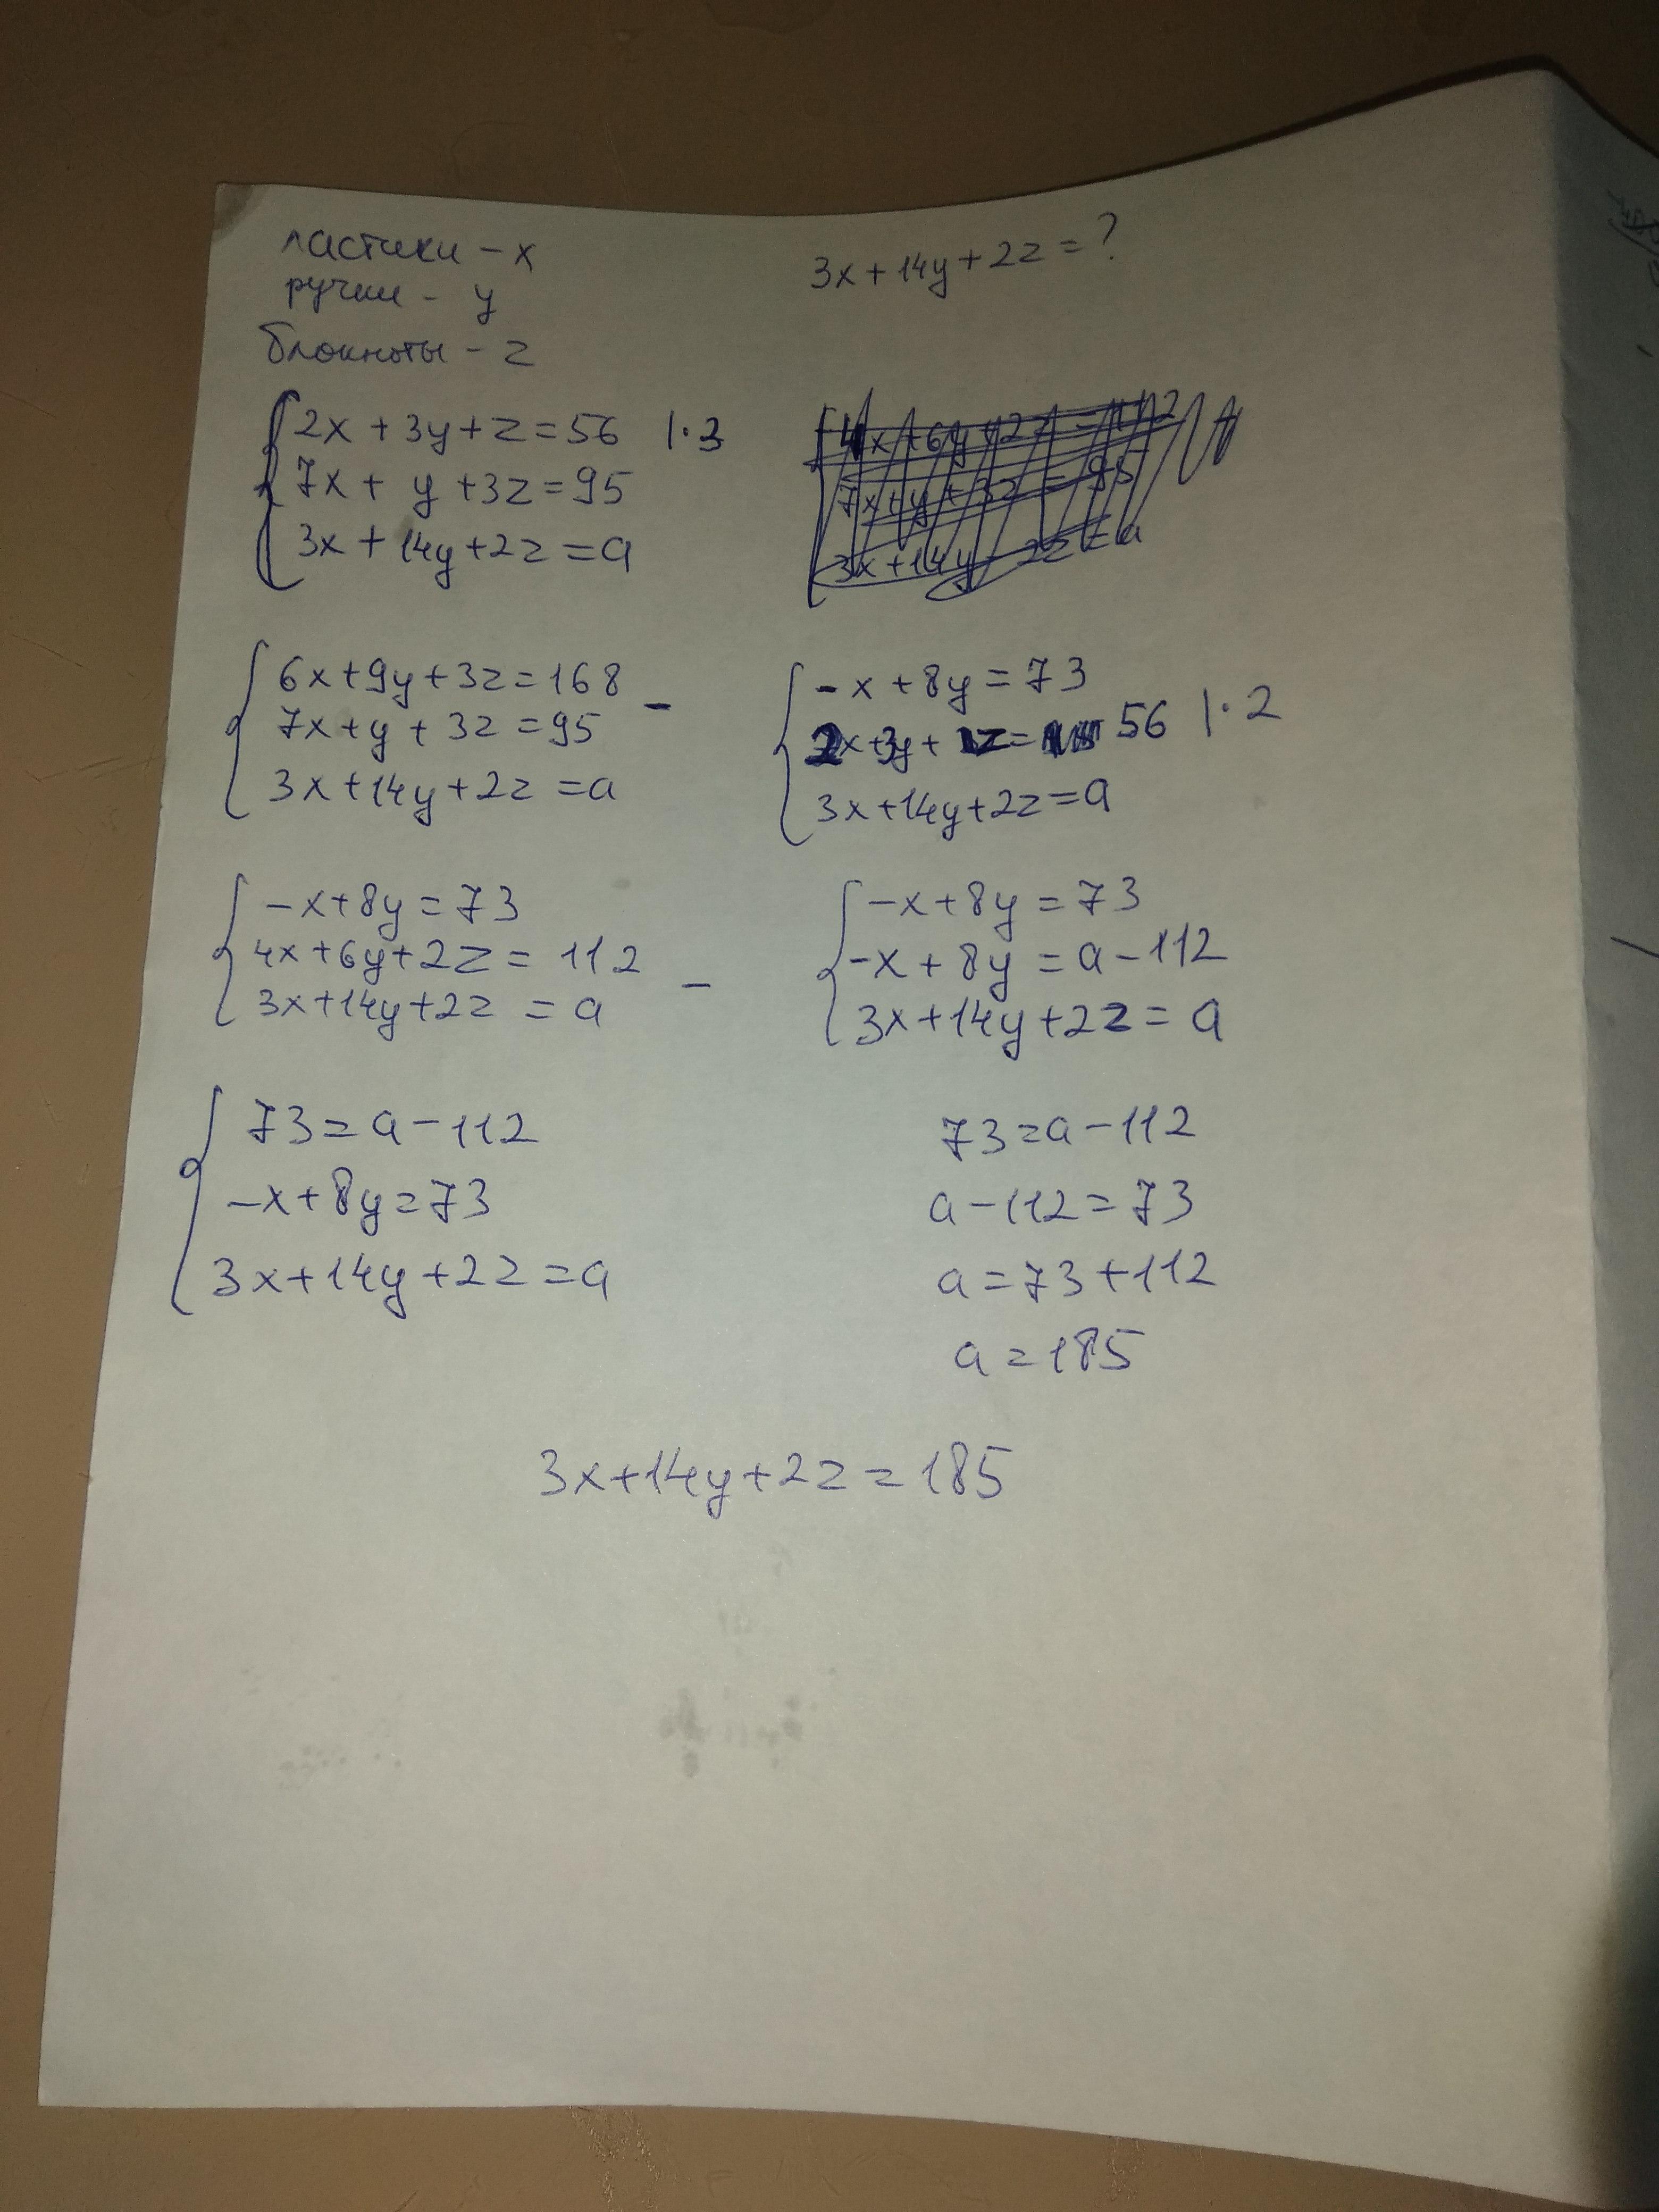 ластики - x
ручки - y
блокноты - z
3x + 14y + 2z = ?
2x + 3y + z = 56 |·3
7x + y + 3z = 95
3x + 14y + 2z = a
4x + 6y + 2z = 112
7x + y + 3z = 95
3x + 14y 2z = a
6x + 9y + 3z = 168
7x + y + 3z = 95 -
3x + 14y + 2z = a
-x + 8y = 73
2x + 3y + z = 56 |·2
3x + 14y + 2z = a
-x + 8y = 73
4x + 6y + 2z = 112
3x + 14y + 2z = a -
-x + 8y = 73
-x + 8y = a - 112
3x + 14y + 2z = a
73 = a - 112
-x + 8y = 73
3x + 14y + 2z = a
73 = a - 112
a - 112 = 73
a = 73 + 112
a = 185
3x + 14y + 2z = 185